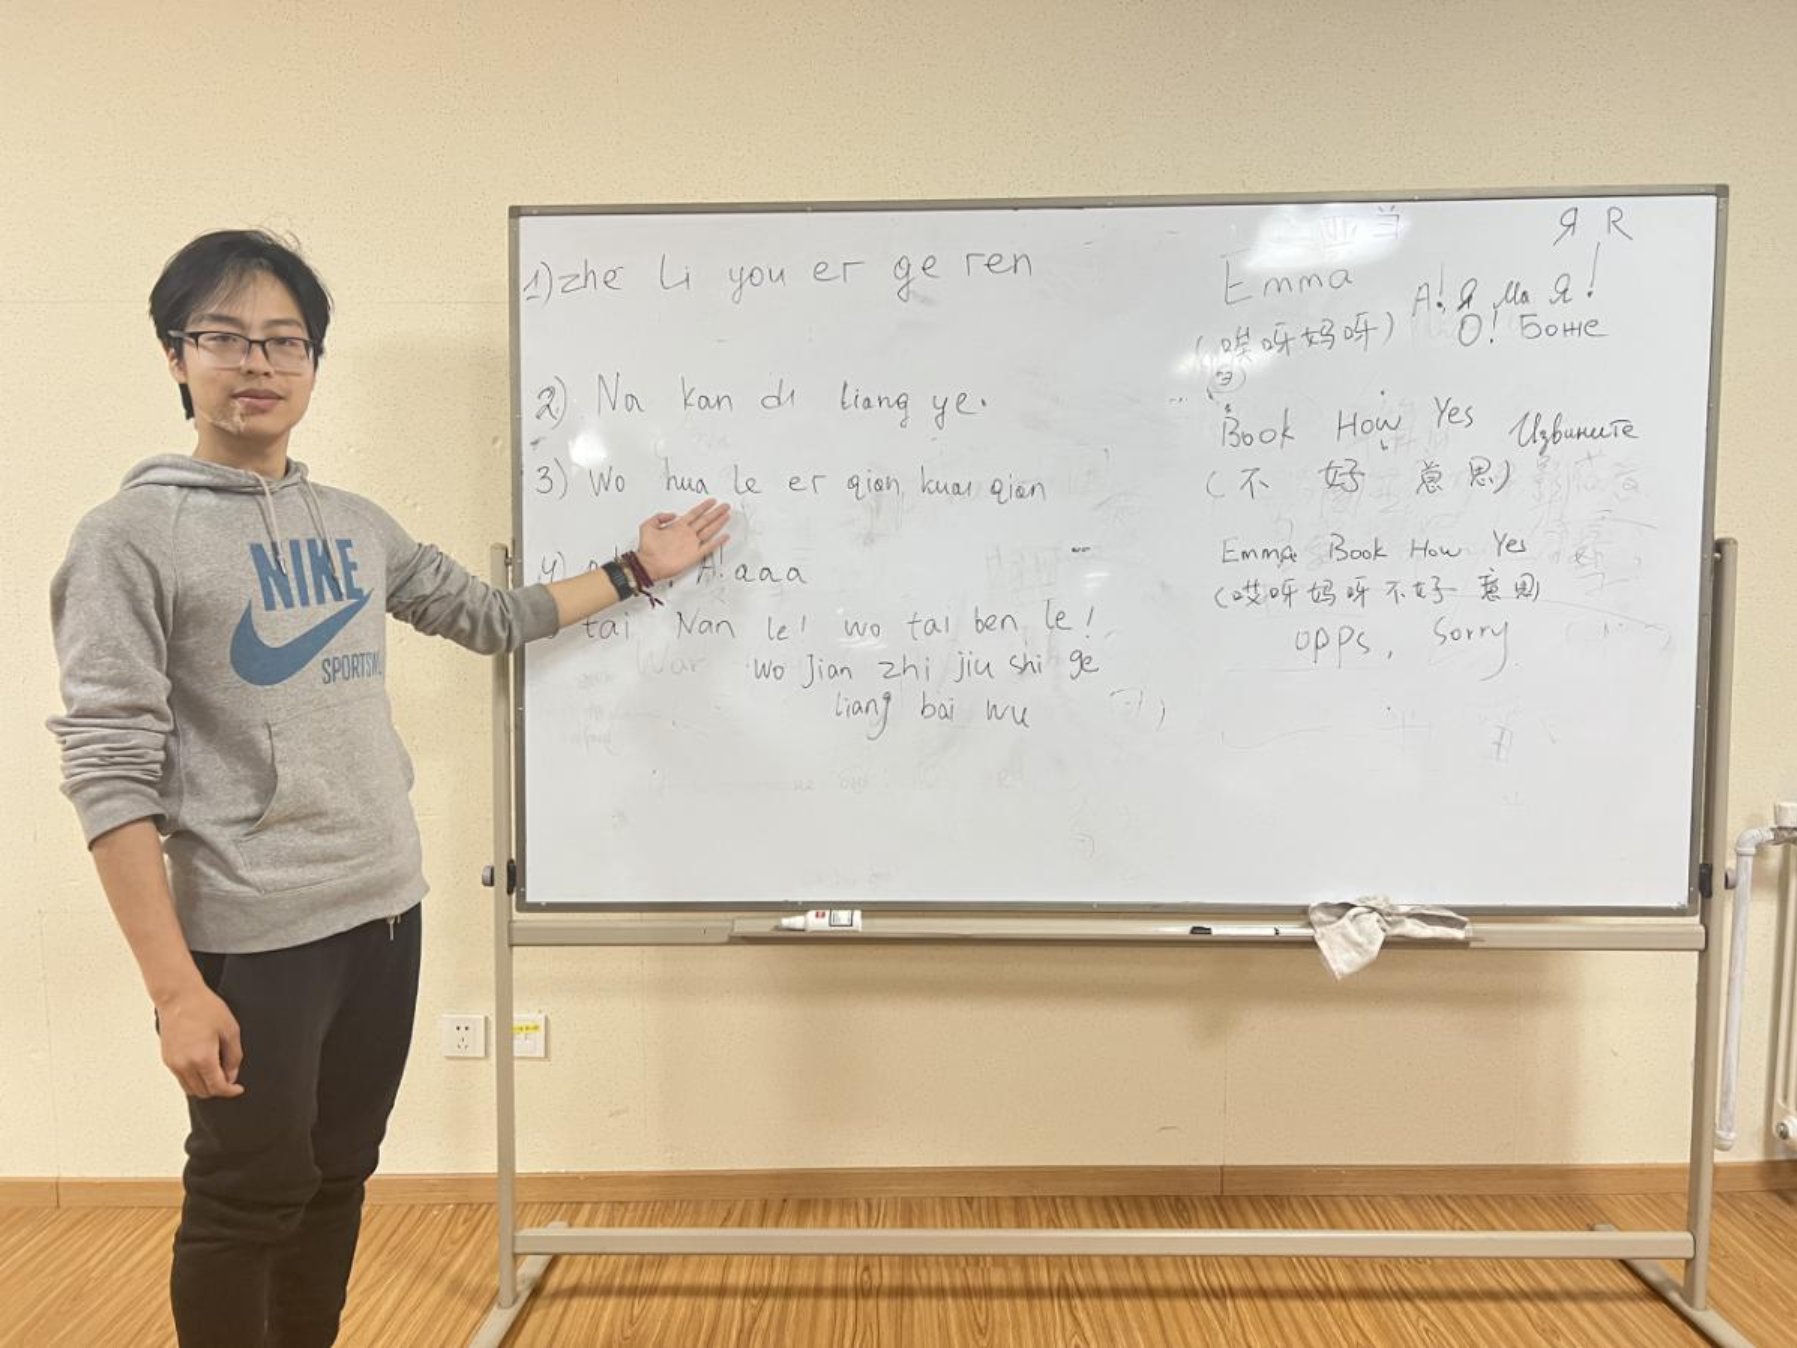 1) zhe Li you er ge ren
2) Na kan di liang ye.
3) Wo hua le er qian kuai qian
4) A! aaa
tai Nan le! wo tai ben le!
wo Jian zhi jiu shi ge
liang bai wu
Я R
Emma
А! Я Ма Я!
(哎呀妈呀)
О! Боже
Book How Yes
Извините
(不 好 意 思)
Emma Book How Yes
(哎呀妈呀不好意思)
opps, Sorry
NIKE
SPORTSW